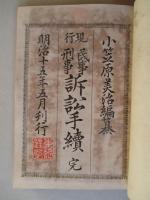 小笠原美治編纂
現行
民事
刑事
訴訟手續 完
明治十五年五月刊行